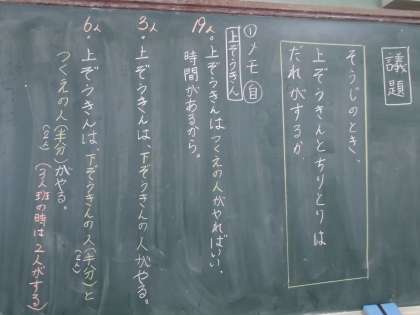 議題
そうじのとき、
上ぞうきんとちりとりは
だれがするか
① メモ 自
上ぞうきん
19人。上ぞうきんはつくえの人がやればいい。
時間があるから。
3人。上ぞうきんは、下ぞうきんの人がやる。
6人。上ぞうきんは、下ぞうきんの人(半分)と
(2人)
つくえの人(半分)がやる。
(2人)
(3人班の時は2人がする)